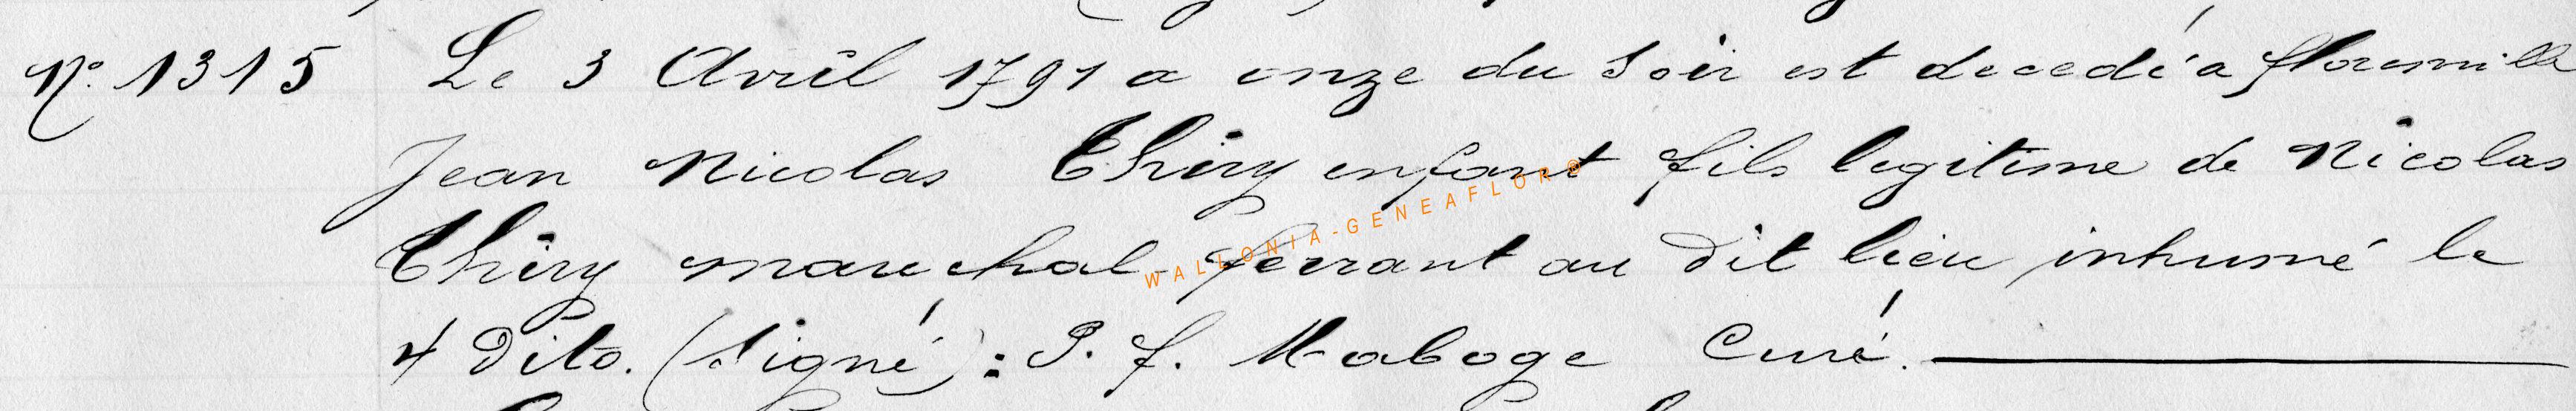 N° 1315 Le 3 Avril 1791 a onze du soir est decedé a florenville
Jean Nicolas Thiry enfant fils legitime de Nicolas
Thiry marechal-ferrant au dit lieu inhumé le
4 dito. (signé): J. f. Maboge Curé.
WALLONIA-GENEAFLOR®